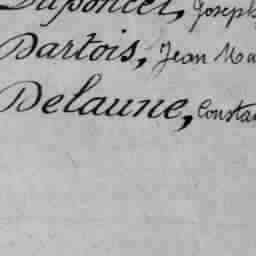 Duponcel, Joseph
Dartois, Jean Ma
Delaune, Consta